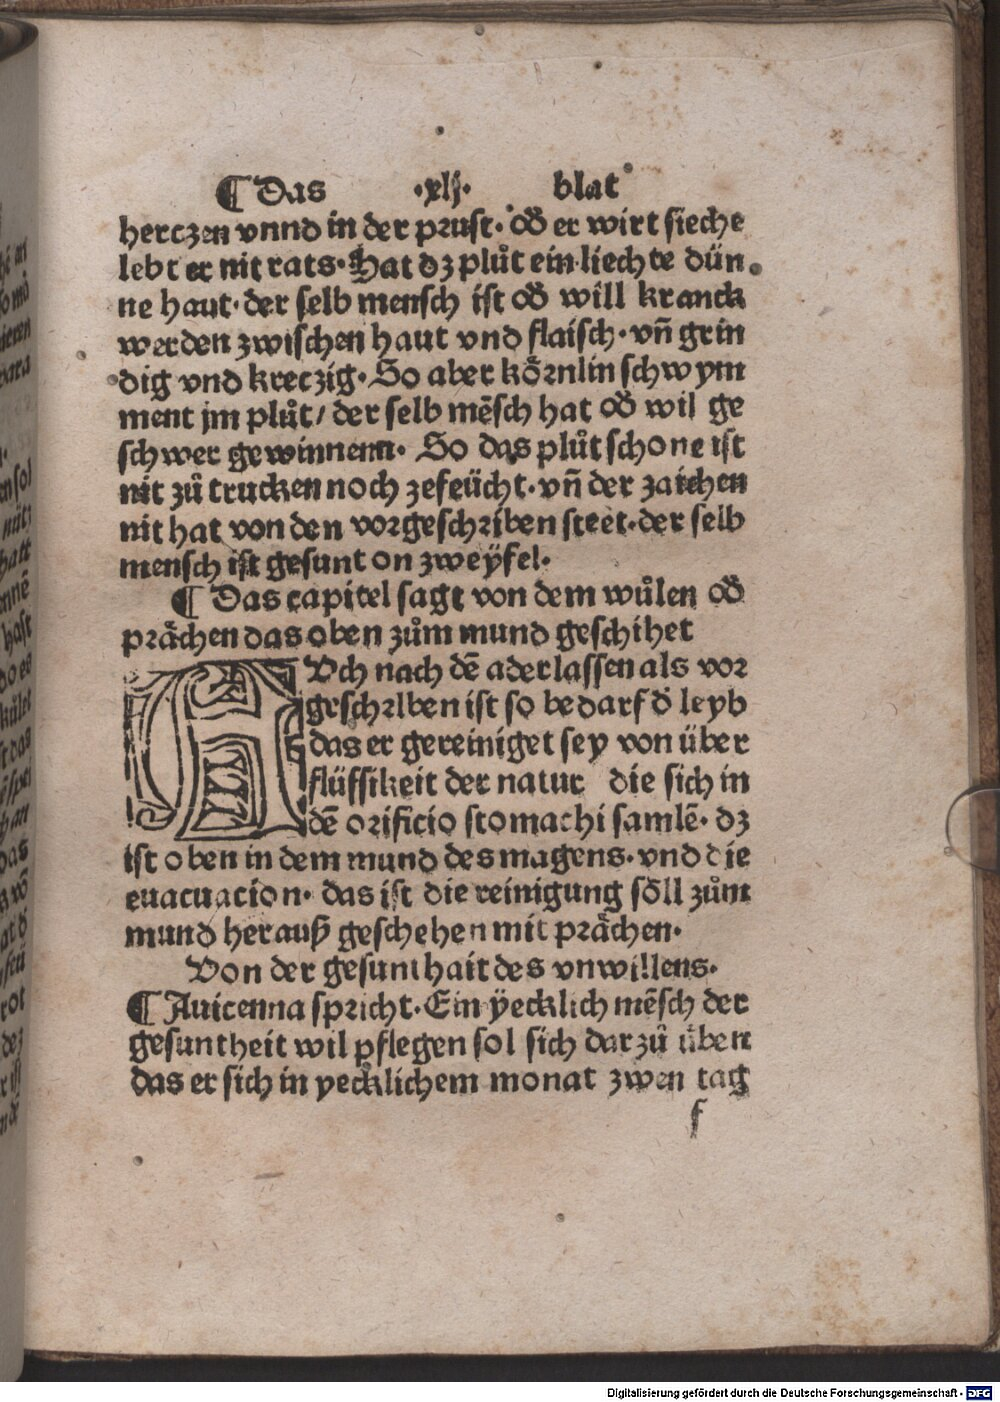 ¶ Das ·xlj· blat
herczen vnnd in der prust· od̄ er wirt sieche
lebt er nit rats· Hat dz plůt ein liechte dün
ne haut· der selb mensch ist od̄ will kranck
werden zwischen haut vnd flaisch· vn̄ grin
dig vnd kreczig· So aber koͤrnlin schwym
ment jm plůt / der selb mēsch hat od̄ wil ge
schwer gewinnenn· So das plůt schone ist
nit zů trucken noch zefeücht· vn̄ der zaichen
nit hat von den vorgeschriben steet· der selb
mensch ist gesunt on zweÿfel·
¶ Das capitel sagt von dem wůlen od̄
praͤchen das oben zům mund geschihet
AVch nach dē aderlassen als vor
geschriben ist so bedarf d̄ leyb
das er gereiniget sey von über
flüssikeit der natur die sich in
dē orificio stomachi samlē· dz
ist oben in dem mund des magens· vnd die
euacuacion· das ist die reinigung soͤll zům
mund herauß geschehen mit praͤchen·
Von der gesunthait des vnwillens·
¶ Auicenna spricht· Ein ÿecklich mēsch der
gesuntheit wil pflegen sol sich dar zů üben
das er sich in yecklichem monat zwen tag
f
Digitalisierung gefördert durch die Deutsche Forschungsgemeinschaft - DFG